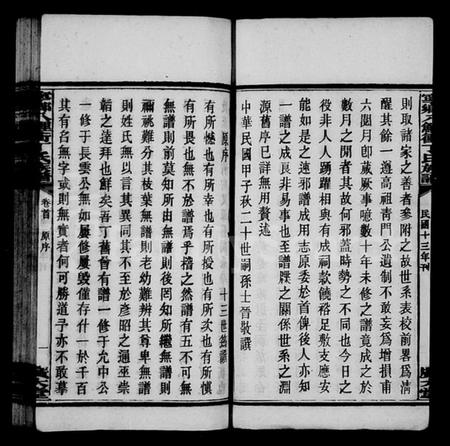 則取諸家之善者參附之故世系表校前畧爲清
醒其餘一遵高祖靑門公遺制不敢妄爲增損甫
六閱月卽歲厥事噫數十年未修之譜竟成之於
數月之間者其故何邪蓋時勢之不同也今日之
役非人人踴躍相與有成祠款饒裕足敷支應安
能如是之速邪譜成用志原委於首俾後人亦知
一譜之成良非易事也至譜牒之關係世系之淵
源舊序已詳無用贅述
中華民國甲子秋二十世嗣孫士晉敬譔
民國十三年刊
原序
十三世
有所懲也有所幸也有所授也有所次也有所愼
有所恍也無不於譜爲乎稽之然譜有五不可無
無譜則前莫知所由無譜則後罔知所繼無譜則
禰祧難分其枝葉無譜則老幼難辨其尊卑無譜
則姓氏無以言其異同其不至於彪昭之遞巫崇
韜之達拜也幾矣吾丁舊曾有譜一修于允中公
一修于長雲公無如屢修屢毀僅存什一於千百
其有名無字或則無實者何可勝道予亦不敢摹
卷首 原序 一